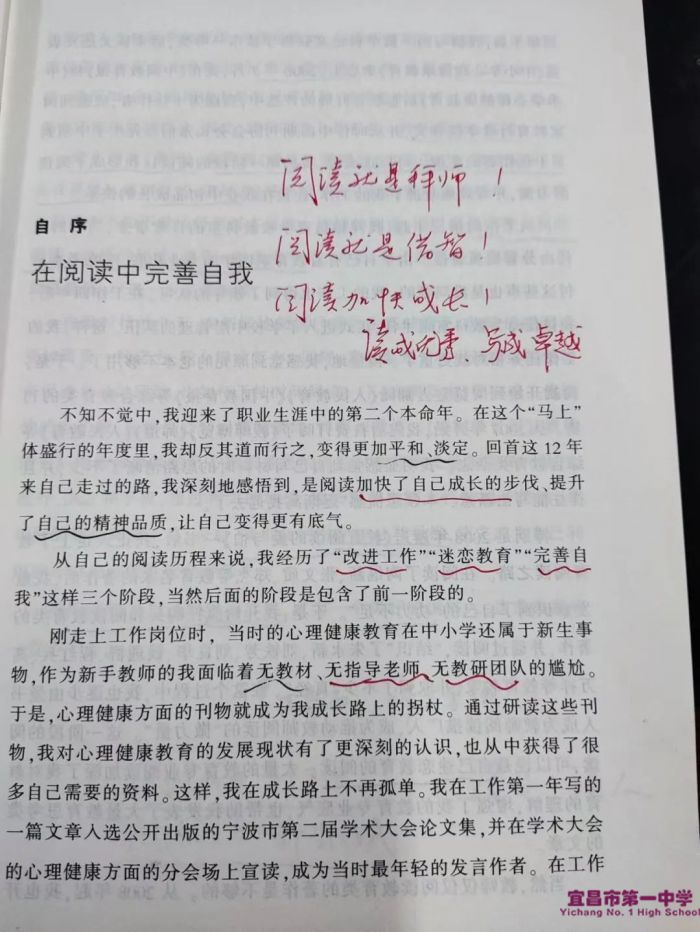 阅读就是拜师！
自序
阅读就是借智！
在阅读中完善自我
阅读加快成长！
读成优秀 写成卓越
不知不觉中，我迎来了职业生涯中的第二个本命年。在这个“马上”
体盛行的年度里，我却反其道而行之，变得更加平和、淡定。回首这 12 年
来自己走过的路，我深刻地感悟到，是阅读加快了自己成长的步伐、提升
了自己的精神品质，让自己变得更有底气。
从自己的阅读历程来说，我经历了“改进工作”“迷恋教育”“完善自
我”这样三个阶段，当然后面的阶段是包含了前一阶段的。
刚走上工作岗位时，当时的心理健康教育在中小学还属于新生事
物，作为新手教师的我面临着无教材、无指导老师、无教研团队的尴尬。
于是，心理健康方面的刊物就成为我成长路上的拐杖。通过研读这些刊
物，我对心理健康教育的发展现状有了更深刻的认识，也从中获得了很
多自己需要的资料。这样，我在成长路上不再孤单。我在工作第一年写的
一篇文章入选公开出版的宁波市第二届学术大会论文集，并在学术大会
的心理健康方面的分会场上宣读，成为当时最年轻的发言作者。在工作
宜昌市第一中学
Yichang No. 1 High School